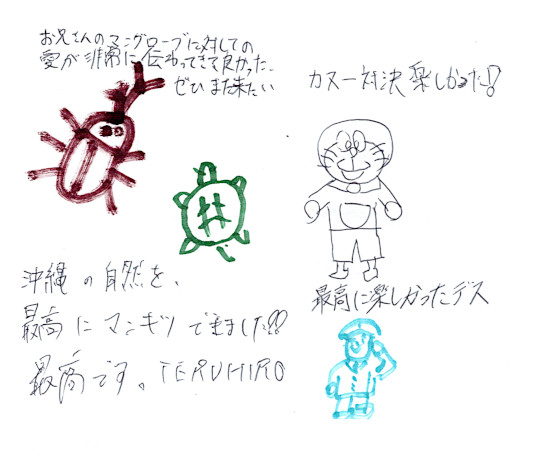 お兄さんのマングローブに対しての
愛が非常に伝わってきて良かった。
ぜひまた来たい
カヌー対決楽しかった!!
沖縄の自然を、
最高にマンキツできました!!
最高です。TERUHIRO
最高に楽しかったデス